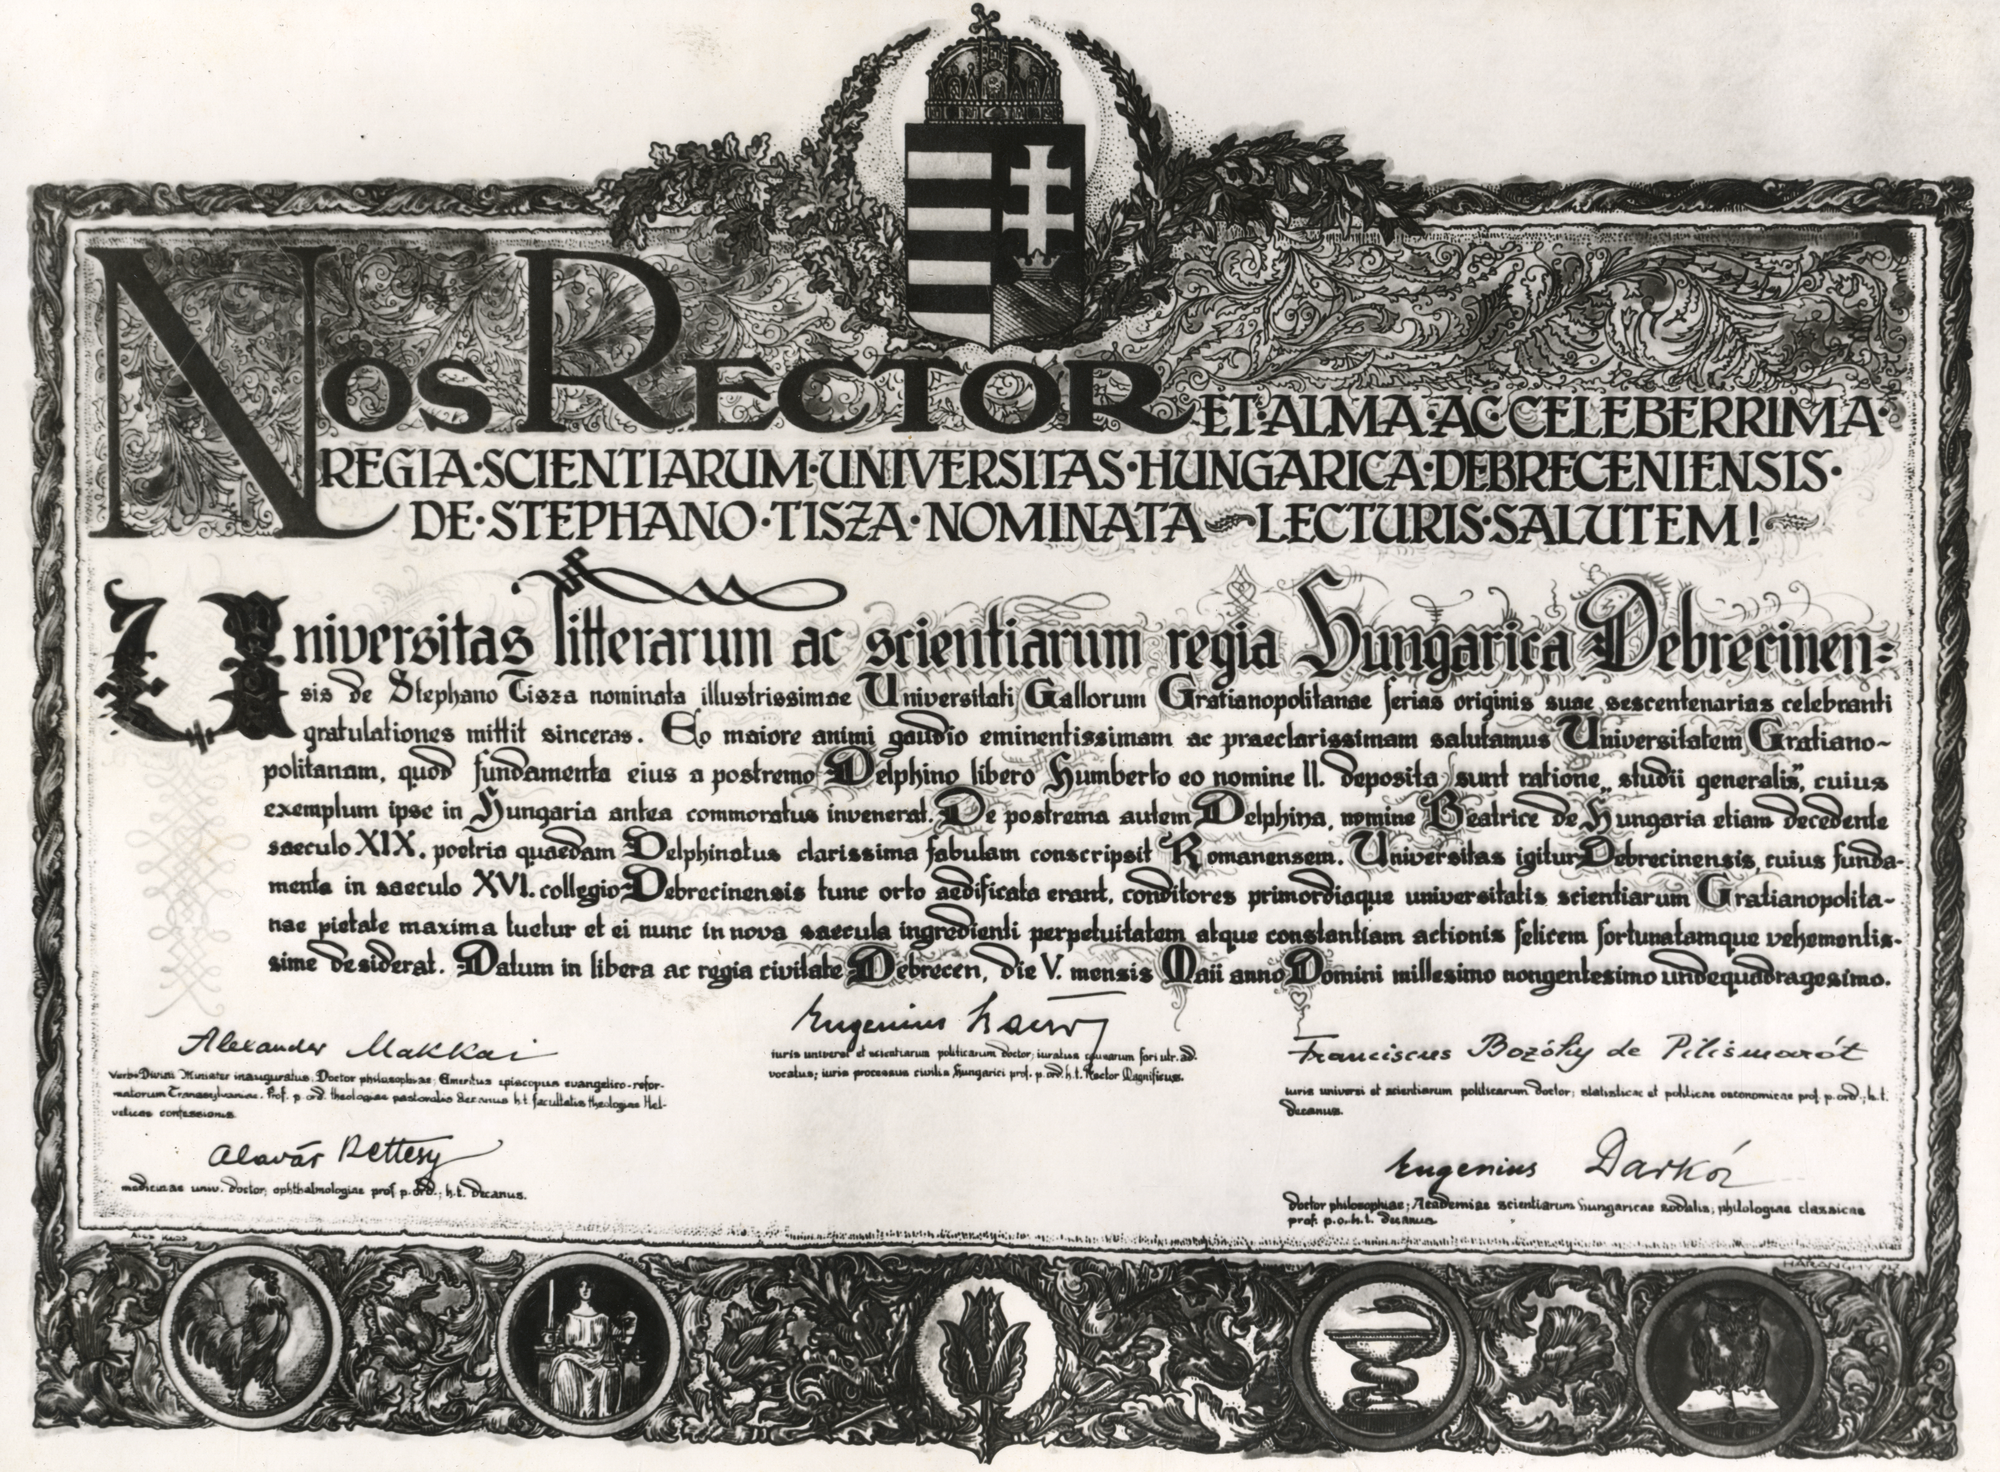 NOS RECTOR ET·ALMA·AC·CELEBERRIMA·
REGIA·SCIENTIARUM·UNIVERSITAS·HUNGARICA·DEBRECENIENSIS·
DE·STEPHANO·TISZA·NOMINATA LECTURIS·SALUTEM!
Universitas litterarum ac scientiarum regia Hungarica Debrecinen=
sis de Stephano Tisza nominata illustrissimae Universitati Gallorum Gratianopolitanae ferias originis suae sescentenarias celebranti
gratulationes mittit sinceras. Eo maiore animi gaudio eminentissimam ac praeclarissimam salutamus Universitatem Gratiano-
politanam, quod fundamenta eius a postremo Delphino libero Humberto eo nomine II. deposita sunt ratione „studii generalis”, cuius
exemplum ipse in Hungaria antea commoratus invenerat. De postrema autem Delphina, nomine Beatrice de Hungaria etiam decedente
saeculo XIX. poetria quaedam Delphinatus clarissima fabulam conscripsit Romanensem. Universitas igitur Debrecinensis, cuius funda-
menta in saeculo XVI. collegio Debrecinensis tunc orto aedificata erant, conditores primordiaque universitatis scientiarum Gratianopolita-
nae pietate maxima tuetur et ei nunc in nova saecula ingredienti perpetuitatem atque constantiam actionis felicem fortunatamque vehementis-
sime desiderat. Datum in libera ac regia civitate Debrecen, die V. mensis Maii anno Domini millesimo nongentesimo undequadragesimo.
Eugenius
iuris universi et scientiarum politicarum doctor; iuratus causarum fori utr. ad.
vocatus; iuris processus civilis Hungarici prof. p. ord. h. t. Rector Magnificus.
Alexander Makkai
Verbi Divini Minister inauguratus; Doctor philosophiae; Emeritus episcopus evangelico-refor-
matorum Transsylvaniae. Prof. p. ord. theologiae pastoralis decanus h. t. facultatis theologiae Hel-
veticae confessionis.
Franciscus Bozóky de Pilismarót
iuris universi et scientiarum politicarum doctor; statisticae et politicae oeconomicae prof. p. ord.; h. t.
decanus.
Alavár Rettesy
medicinae univ. doctor; ophthalmologiae prof. p. ord.; h. t. decanus.
Eugenius Darkó
doctor philosophiae; Academiae scientiarum Hungaricae sodalis; philologiae classicae
prof. p. o. h. t. decanus.
HARANGHY